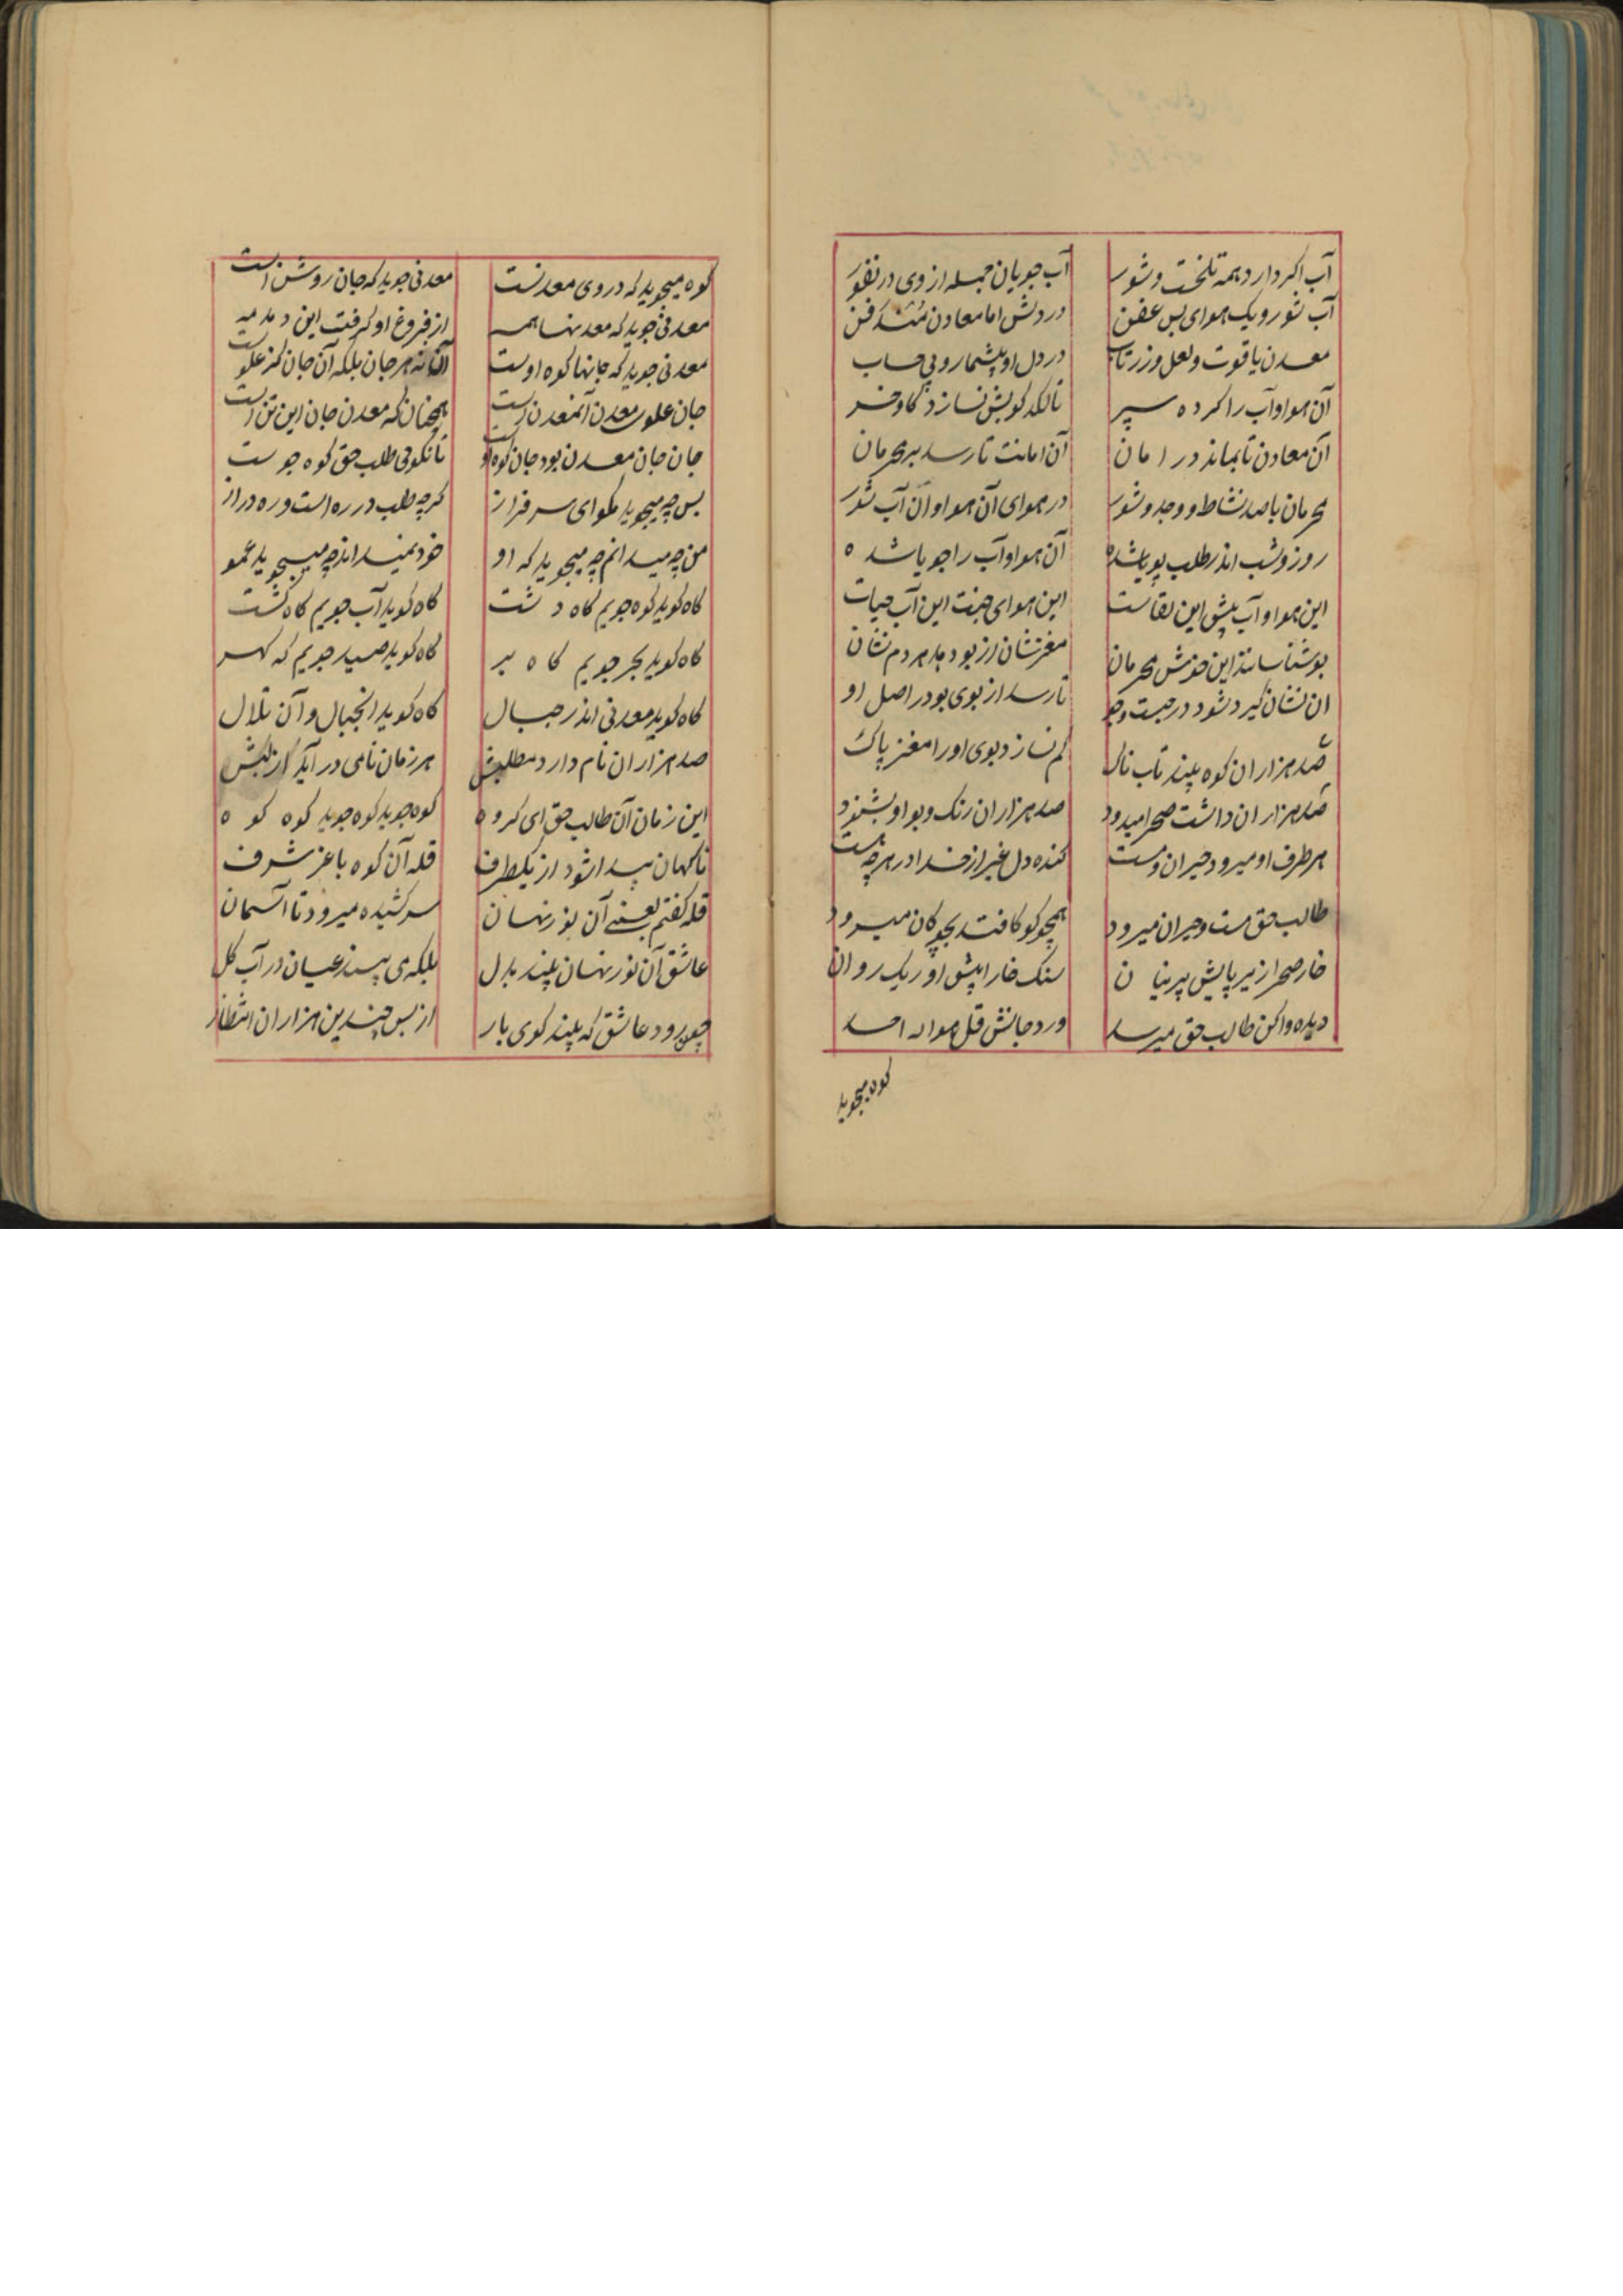 آب اکر دارد همه تلخست و شور آب جویان جمله از وی در نفور
آب شور و یک هوای بس عفن در دلش اما معادن مندفن
معدن یاقوت و لعل و زر تاب در دل او بیشمار و بی حساب
آن هوا و آب را کرده سپر تا لکدکوبش نسازد کاو و خر
آن معادن تا بماند در امان آن امانت تا رسد بر محرمان
محرمان با صد نشاط و وجد و شور در هوای آن هوا و آن آب شور
روز و شب اندر طلب پویا شده آن هوا و آب را جویا شده
این هوا و آب پیش این لقاست این هوای جنت این آب حیات
بوشناسانند این خوش محرمان مغزشان از بو دهد هر دم نشان
آن نشان کیرد شود در جست و جو تا رسد از بوی بو در اصل او
صد هزاران کوه بیند تابناک کم نسازد بوی او را مغز پاک
صد هزاران داشت صحرا میدود صد هزاران رنک و بو او بشنود
هر طرف او میرود حیران و مست کنده دل غیر از خدا در هر چه هست
طالب حق مست و حیران میرود همچو کو کافتد بچوکان میرود
خار صحرا زیر پایش پرنیان سنک خارا پیش او ریک روان
دیده وا کن طالب حق میرسد ورد جانش قل هو الله احد
کوه میجوید
کوه میجوید که در وی معدنست معدنی جوید که جان روشن است
معدنی جوید که معدنها همه از فروغ او کرفت این دمدمه
معدنی جوید که جانها کوه اوست آن نه هر جان بلکه آن جان کز علوست
جان علوی معدن آنمعدن است همچنان که معدن جان این تن است
جان جان معدن بود جان کوه او تا نکوئی طلب حق کوه جوست
بس چه میجوید بکو ای سرفراز کرچه طلب در ره است و ره دراز
من چه میدانم چه میجوید که او خود نمیداند چه میجوید عمو
کاه کوید کوه جویم کاه دشت کاه کوید آب جویم کاه کشت
کاه کوید بحر جویم کاه بر کاه کوید صید جویم که کهر
کاه کوید معدنی اندر جبال کاه کوید آنجبال و آن تلال
صد هزاران نام دارد مطلبش هر زمان نامی در آید از لبش
این زمان آن طالب حق ای کروه کوه جوید کوه جوید کوه کوه
ناکهان پیدا شود از یکطرف قله آن کوه با عز شرف
قله کفتم یعنی آن نور نهان سر کشیده میرود تا آسمان
عاشق آن نور نهان بیند بدل بلکه می بیند عیان در آب کل
چون رود عاشق که بیند کوی یار از بس چندین هزاران انتظار